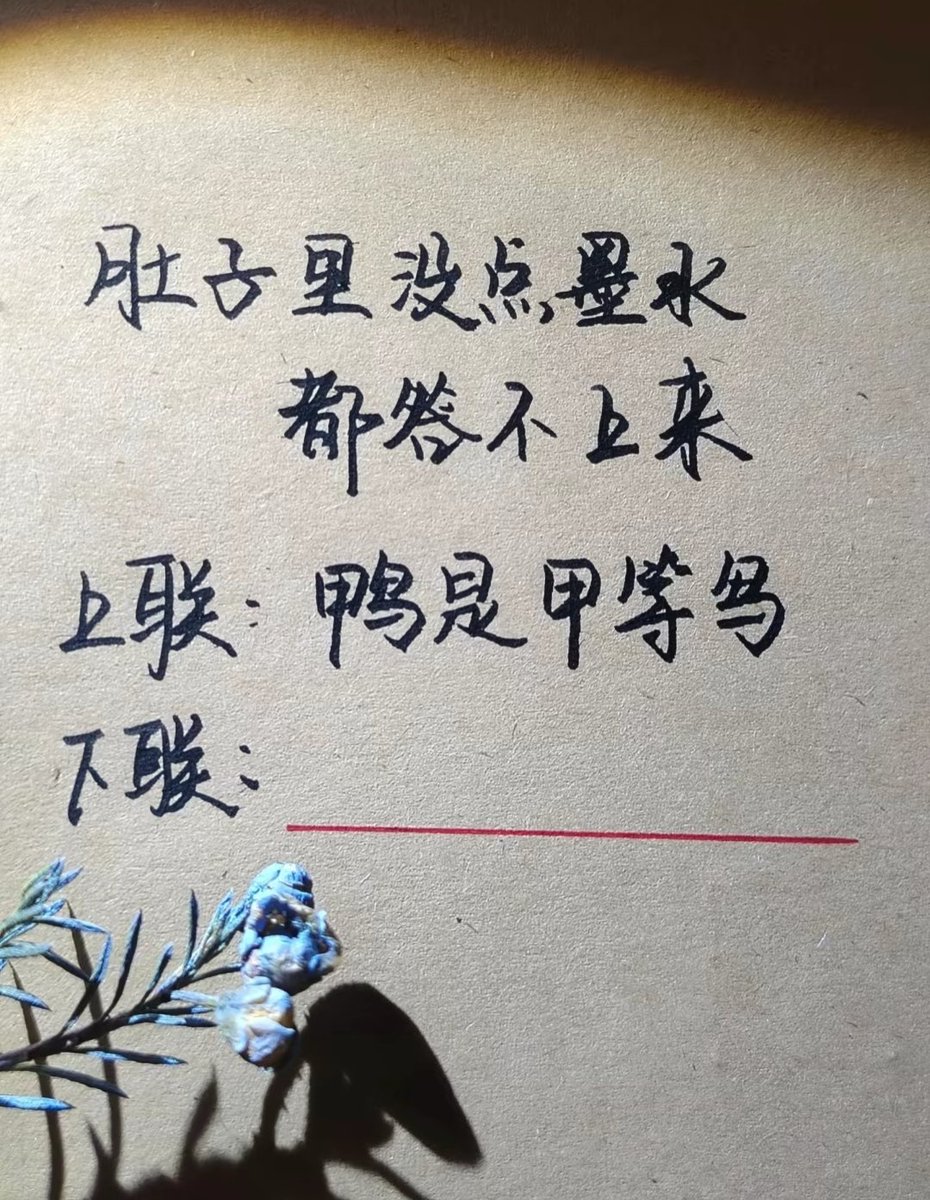 肚子里没点墨水
都答不上来
上联：鸭是甲等鸟
下联：